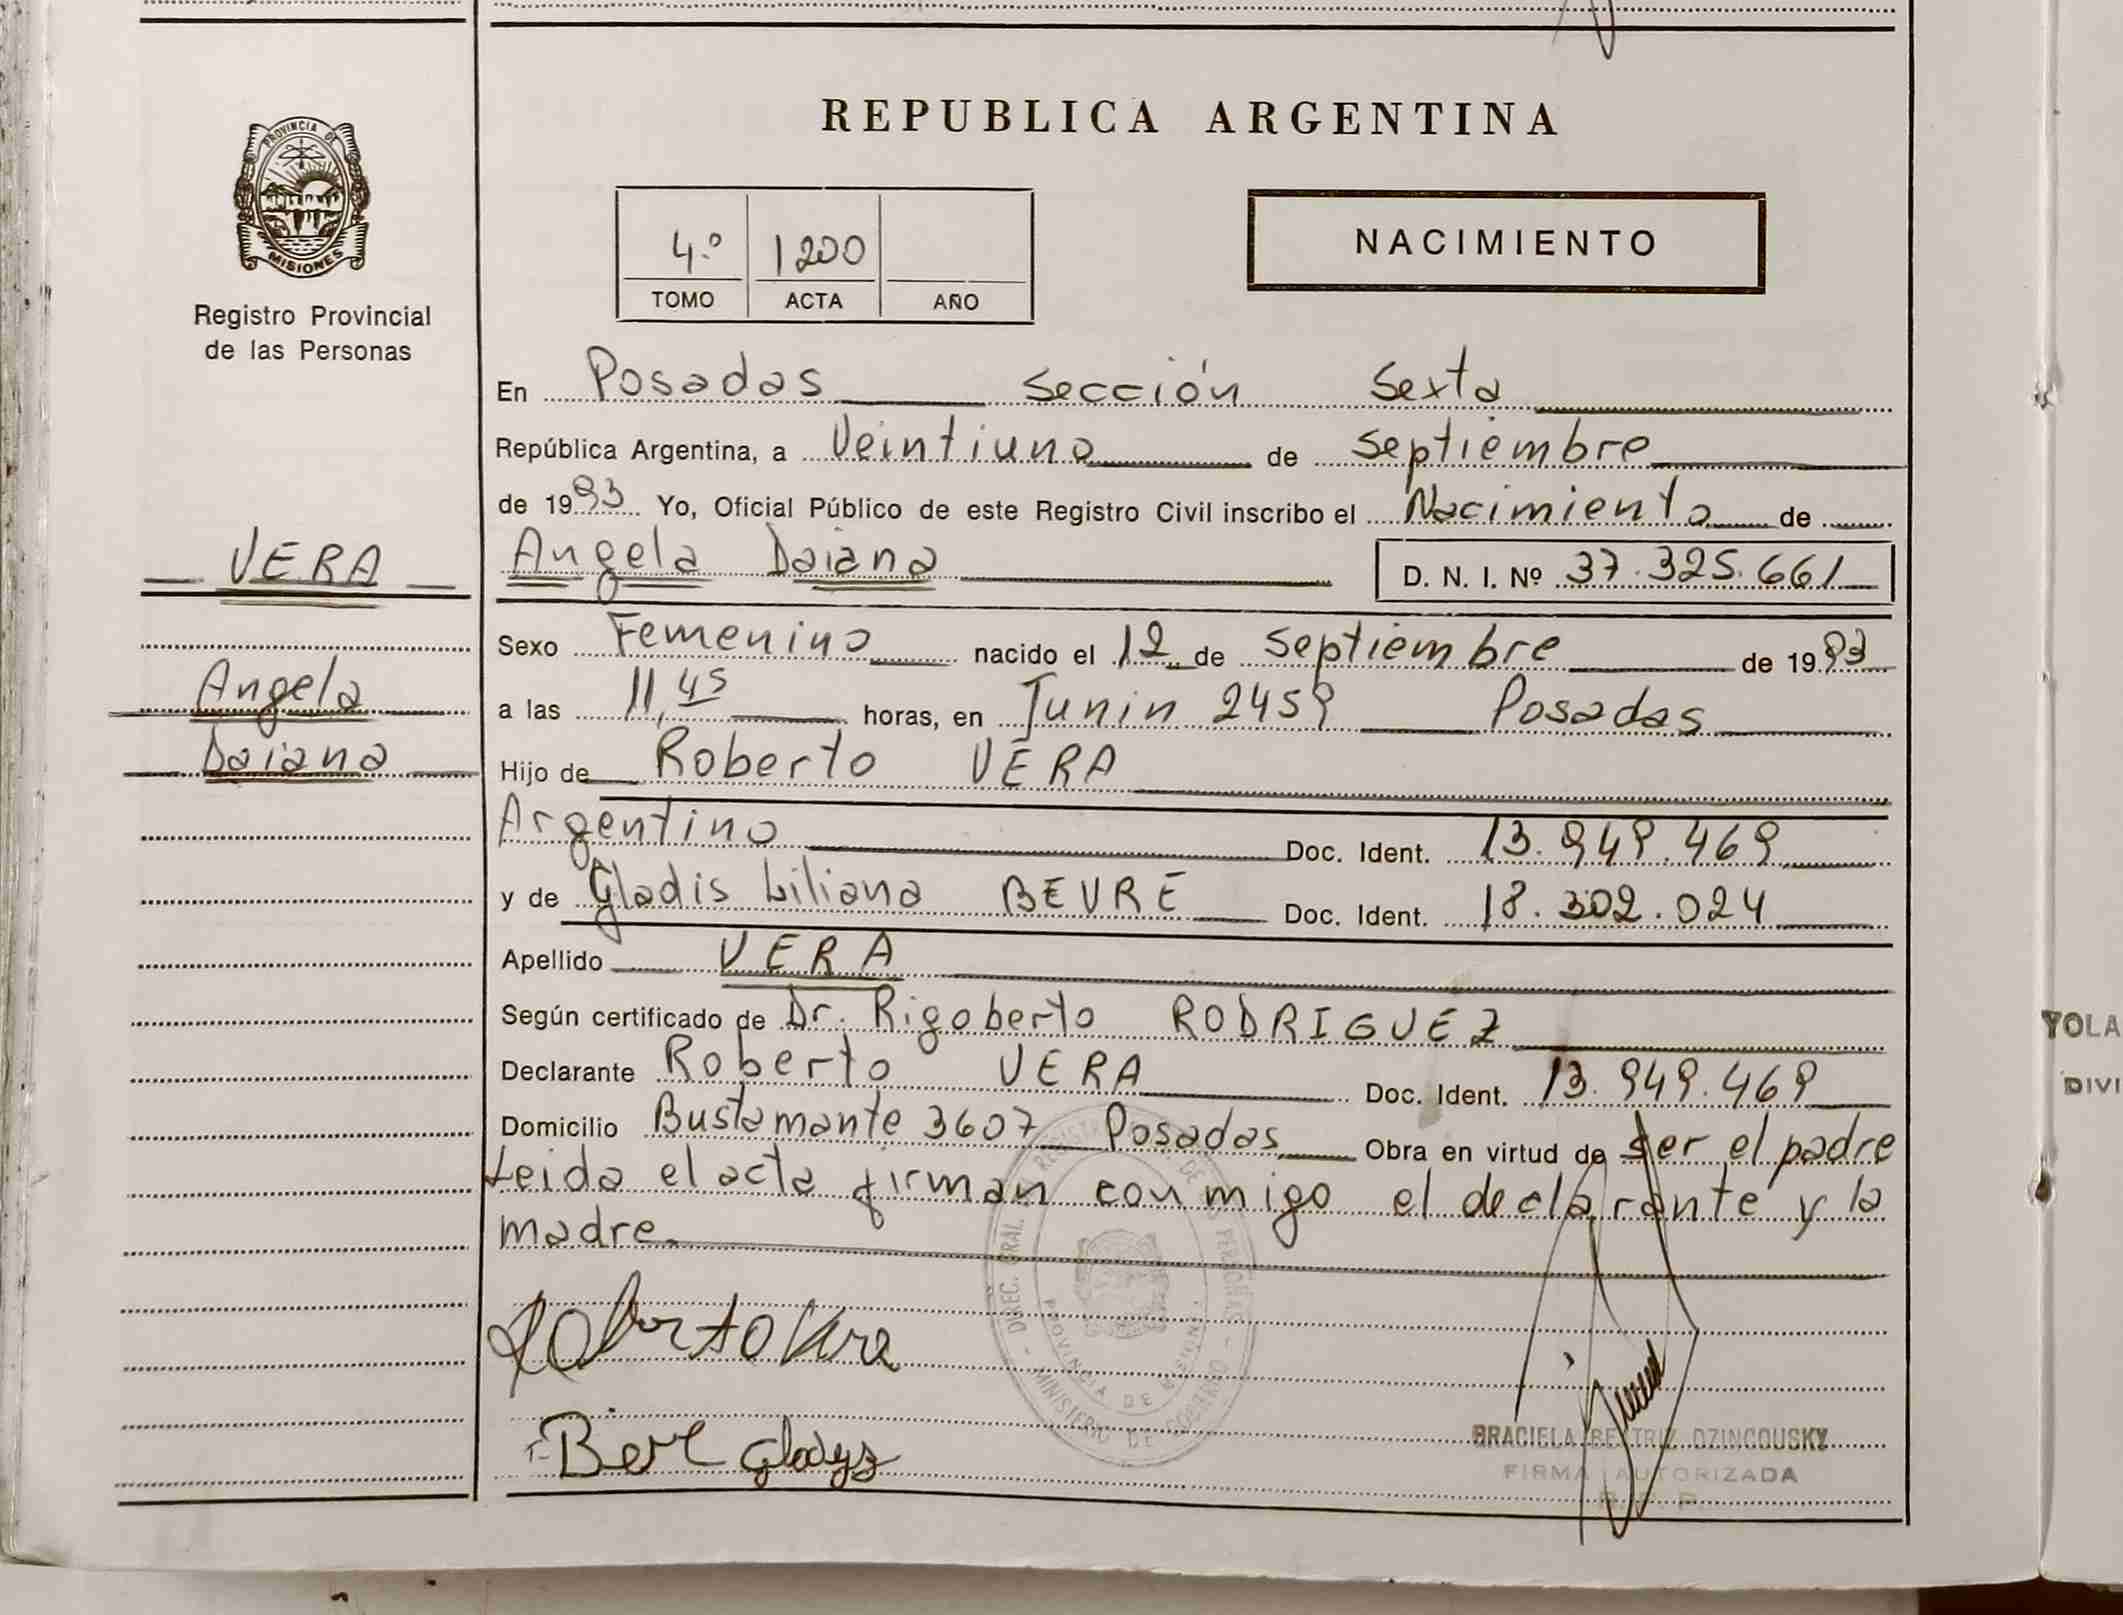 REPUBLICA ARGENTINA
PROVINCIA DE
MISIONES
Registro Provincial
de las Personas
4.º 1200
TOMO ACTA AÑO
NACIMIENTO
En Posadas Sección Sexta
República Argentina, a Veintiuno de Septiembre
de 1993 Yo, Oficial Público de este Registro Civil inscribo el Nacimiento de
VERA
Angela Daiana D. N. I. Nº 37.325.661
Sexo Femenino nacido el 12 de Septiembre de 1993
Angela
a las 11,45 horas, en Junin 2459 Posadas
Daiana
Hijo de Roberto VERA
Argentino Doc. Ident. 13.949.469
y de Gladis Liliana BEVRE Doc. Ident. 18.302.024
Apellido VERA
Según certificado de Dr. Rigoberto RODRIGUEZ
Declarante Roberto VERA Doc. Ident. 13.949.469
Domicilio Bustamante 3607 Posadas Obra en virtud de ser el padre
Leida el acta firman conmigo el declarante y la
madre.
DIREC. GRAL. DE REGISTRO DE LAS PERSONAS - MINISTERIO DE GOBIERNO -
PROVINCIA DE MISIONES
Roberto Vera
Gladys
GRACIELA BEATRIZ DZINCOUSKY
FIRMA AUTORIZADA
YOLA
DIVI